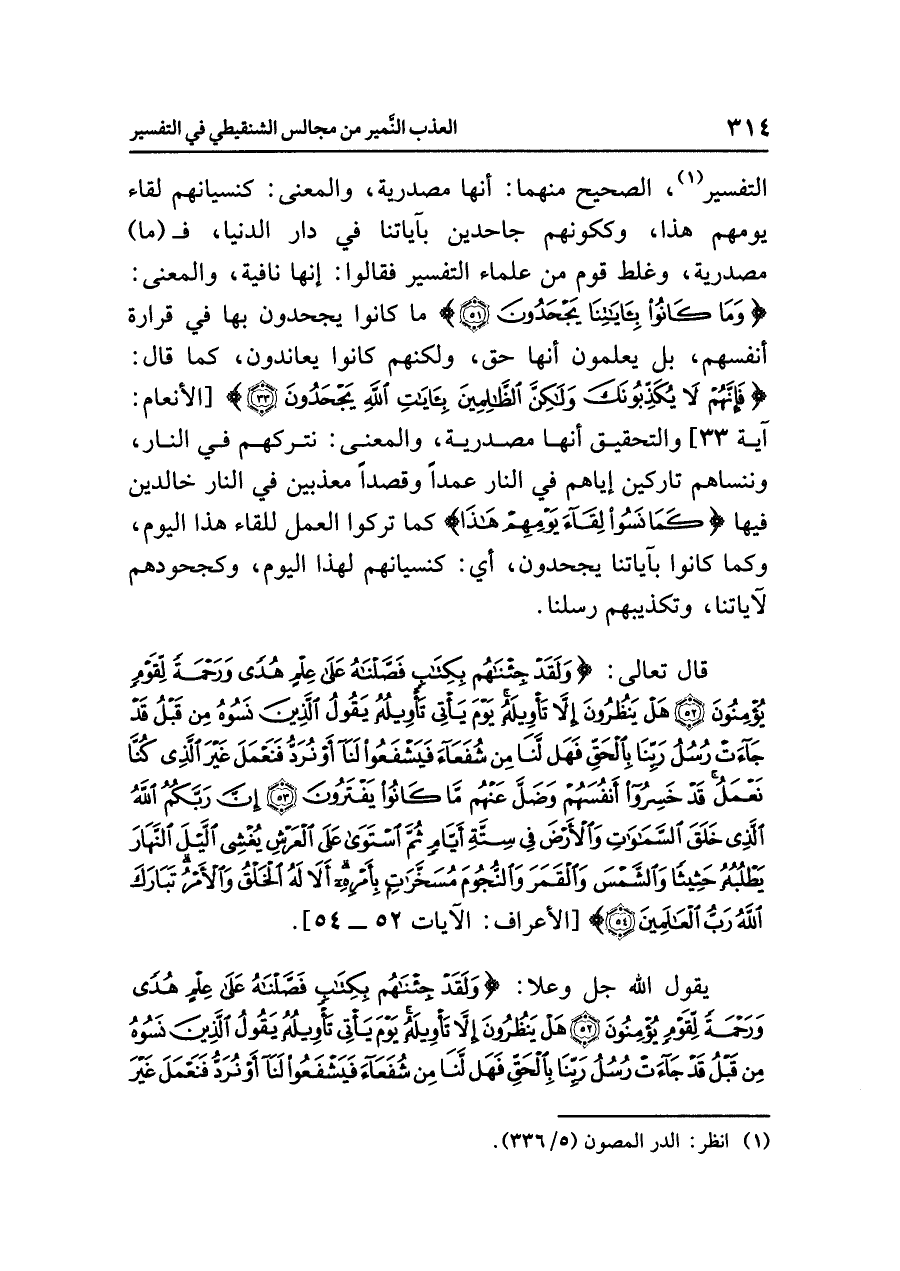 ٣١٤ العذب النَّمير من مجالس الشنقيطي في التفسير
التفسير(١)، الصحيح منهما: أنها مصدرية، والمعنى: كنسيانهم لقاء
يومهم هذا، وككونهم جاحدين بآياتنا في دار الدنيا، فـ (ما)
مصدرية، وغلط قوم من علماء التفسير فقالوا: إنها نافية، والمعنى:
﴿ وَمَا كَانُوا۟ بِـَٔايَـٰتِنَا يَجۡحَدُونَ ۝٥١ ﴾ ما كانوا يجحدون بها في قرارة
أنفسهم، بل يعلمون أنها حق، ولكنهم كانوا يعاندون، كما قال:
﴿ فَإِنَّهُمۡ لَا يُكَذِّبُونَكَ وَلَـٰكِنَّ ٱلظَّـٰلِمِينَ بِـَٔايَـٰتِ ٱللَّهِ يَجۡحَدُونَ ۝٣٣ ﴾ [الأنعام:
آية ٣٣] والتحقيق أنهـا مصـدريـة، والمعنـى: نتـركهـم فـي النـار،
وننساهم تاركين إياهم في النار عمداً وقصداً معذبين في النار خالدين
فيها ﴿ كَمَا نَسُوا۟ لِقَآءَ يَوۡمِهِمۡ هَـٰذَا﴾ كما تركوا العمل للقاء هذا اليوم،
وكما كانوا بآياتنا يجحدون، أي: كنسيانهم لهذا اليوم، وكجحودهم
لآياتنا، وتكذيبهم رسلنا.
قال تعالى: ﴿ وَلَقَدۡ جِئۡنَـٰهُم بِكِتَـٰبٍ فَصَّلۡنَـٰهُ عَلَىٰ عِلۡمٍ هُدًى وَرَحۡمَةً لِّقَوۡمٍ
يُؤۡمِنُونَ ۝٥٢ هَلۡ يَنظُرُونَ إِلَّا تَأۡوِيلَهُۥۚ يَوۡمَ يَأۡتِى تَأۡوِيلُهُۥ يَقُولُ ٱلَّذِينَ نَسُوهُ مِن قَبۡلُ قَدۡ
جَآءَتۡ رُسُلُ رَبِّنَا بِٱلۡحَقِّ فَهَل لَّنَا مِن شُفَعَآءَ فَيَشۡفَعُوا۟ لَنَآ أَوۡ نُرَدُّ فَنَعۡمَلَ غَيۡرَ ٱلَّذِى كُنَّا
نَعۡمَلُۚ قَدۡ خَسِرُوٓا۟ أَنفُسَهُمۡ وَضَلَّ عَنۡهُم مَّا كَانُوا۟ يَفۡتَرُونَ ۝٥٣ إِنَّ رَبَّكُمُ ٱللَّهُ
ٱلَّذِى خَلَقَ ٱلسَّمَـٰوَٰتِ وَٱلۡأَرۡضَ فِى سِتَّةِ أَيَّامٍ ثُمَّ ٱسۡتَوَىٰ عَلَى ٱلۡعَرۡشِ يُغۡشِى ٱلَّيۡلَ ٱلنَّهَارَ
يَطۡلُبُهُۥ حَثِيثًا وَٱلشَّمۡسَ وَٱلۡقَمَرَ وَٱلنُّجُومَ مُسَخَّرَٰتٍۭ بِأَمۡرِهِۦٓۗ أَلَا لَهُ ٱلۡخَلۡقُ وَٱلۡأَمۡرُۗ تَبَارَكَ
ٱللَّهُ رَبُّ ٱلۡعَـٰلَمِينَ ۝٥٤ ﴾ [الأعراف: الآيات ٥٢ ــ ٥٤].
يقول الله جل وعلا: ﴿ وَلَقَدۡ جِئۡنَـٰهُم بِكِتَـٰبٍ فَصَّلۡنَـٰهُ عَلَىٰ عِلۡمٍ هُدًى
وَرَحۡمَةً لِّقَوۡمٍ يُؤۡمِنُونَ ۝٥٢ هَلۡ يَنظُرُونَ إِلَّا تَأۡوِيلَهُۥۚ يَوۡمَ يَأۡتِى تَأۡوِيلُهُۥ يَقُولُ ٱلَّذِينَ نَسُوهُ
مِن قَبۡلُ قَدۡ جَآءَتۡ رُسُلُ رَبِّنَا بِٱلۡحَقِّ فَهَل لَّنَا مِن شُفَعَآءَ فَيَشۡفَعُوا۟ لَنَآ أَوۡ نُرَدُّ فَنَعۡمَلَ غَيۡرَ
(١) انظر: الدر المصون (٣٣٦/٥).